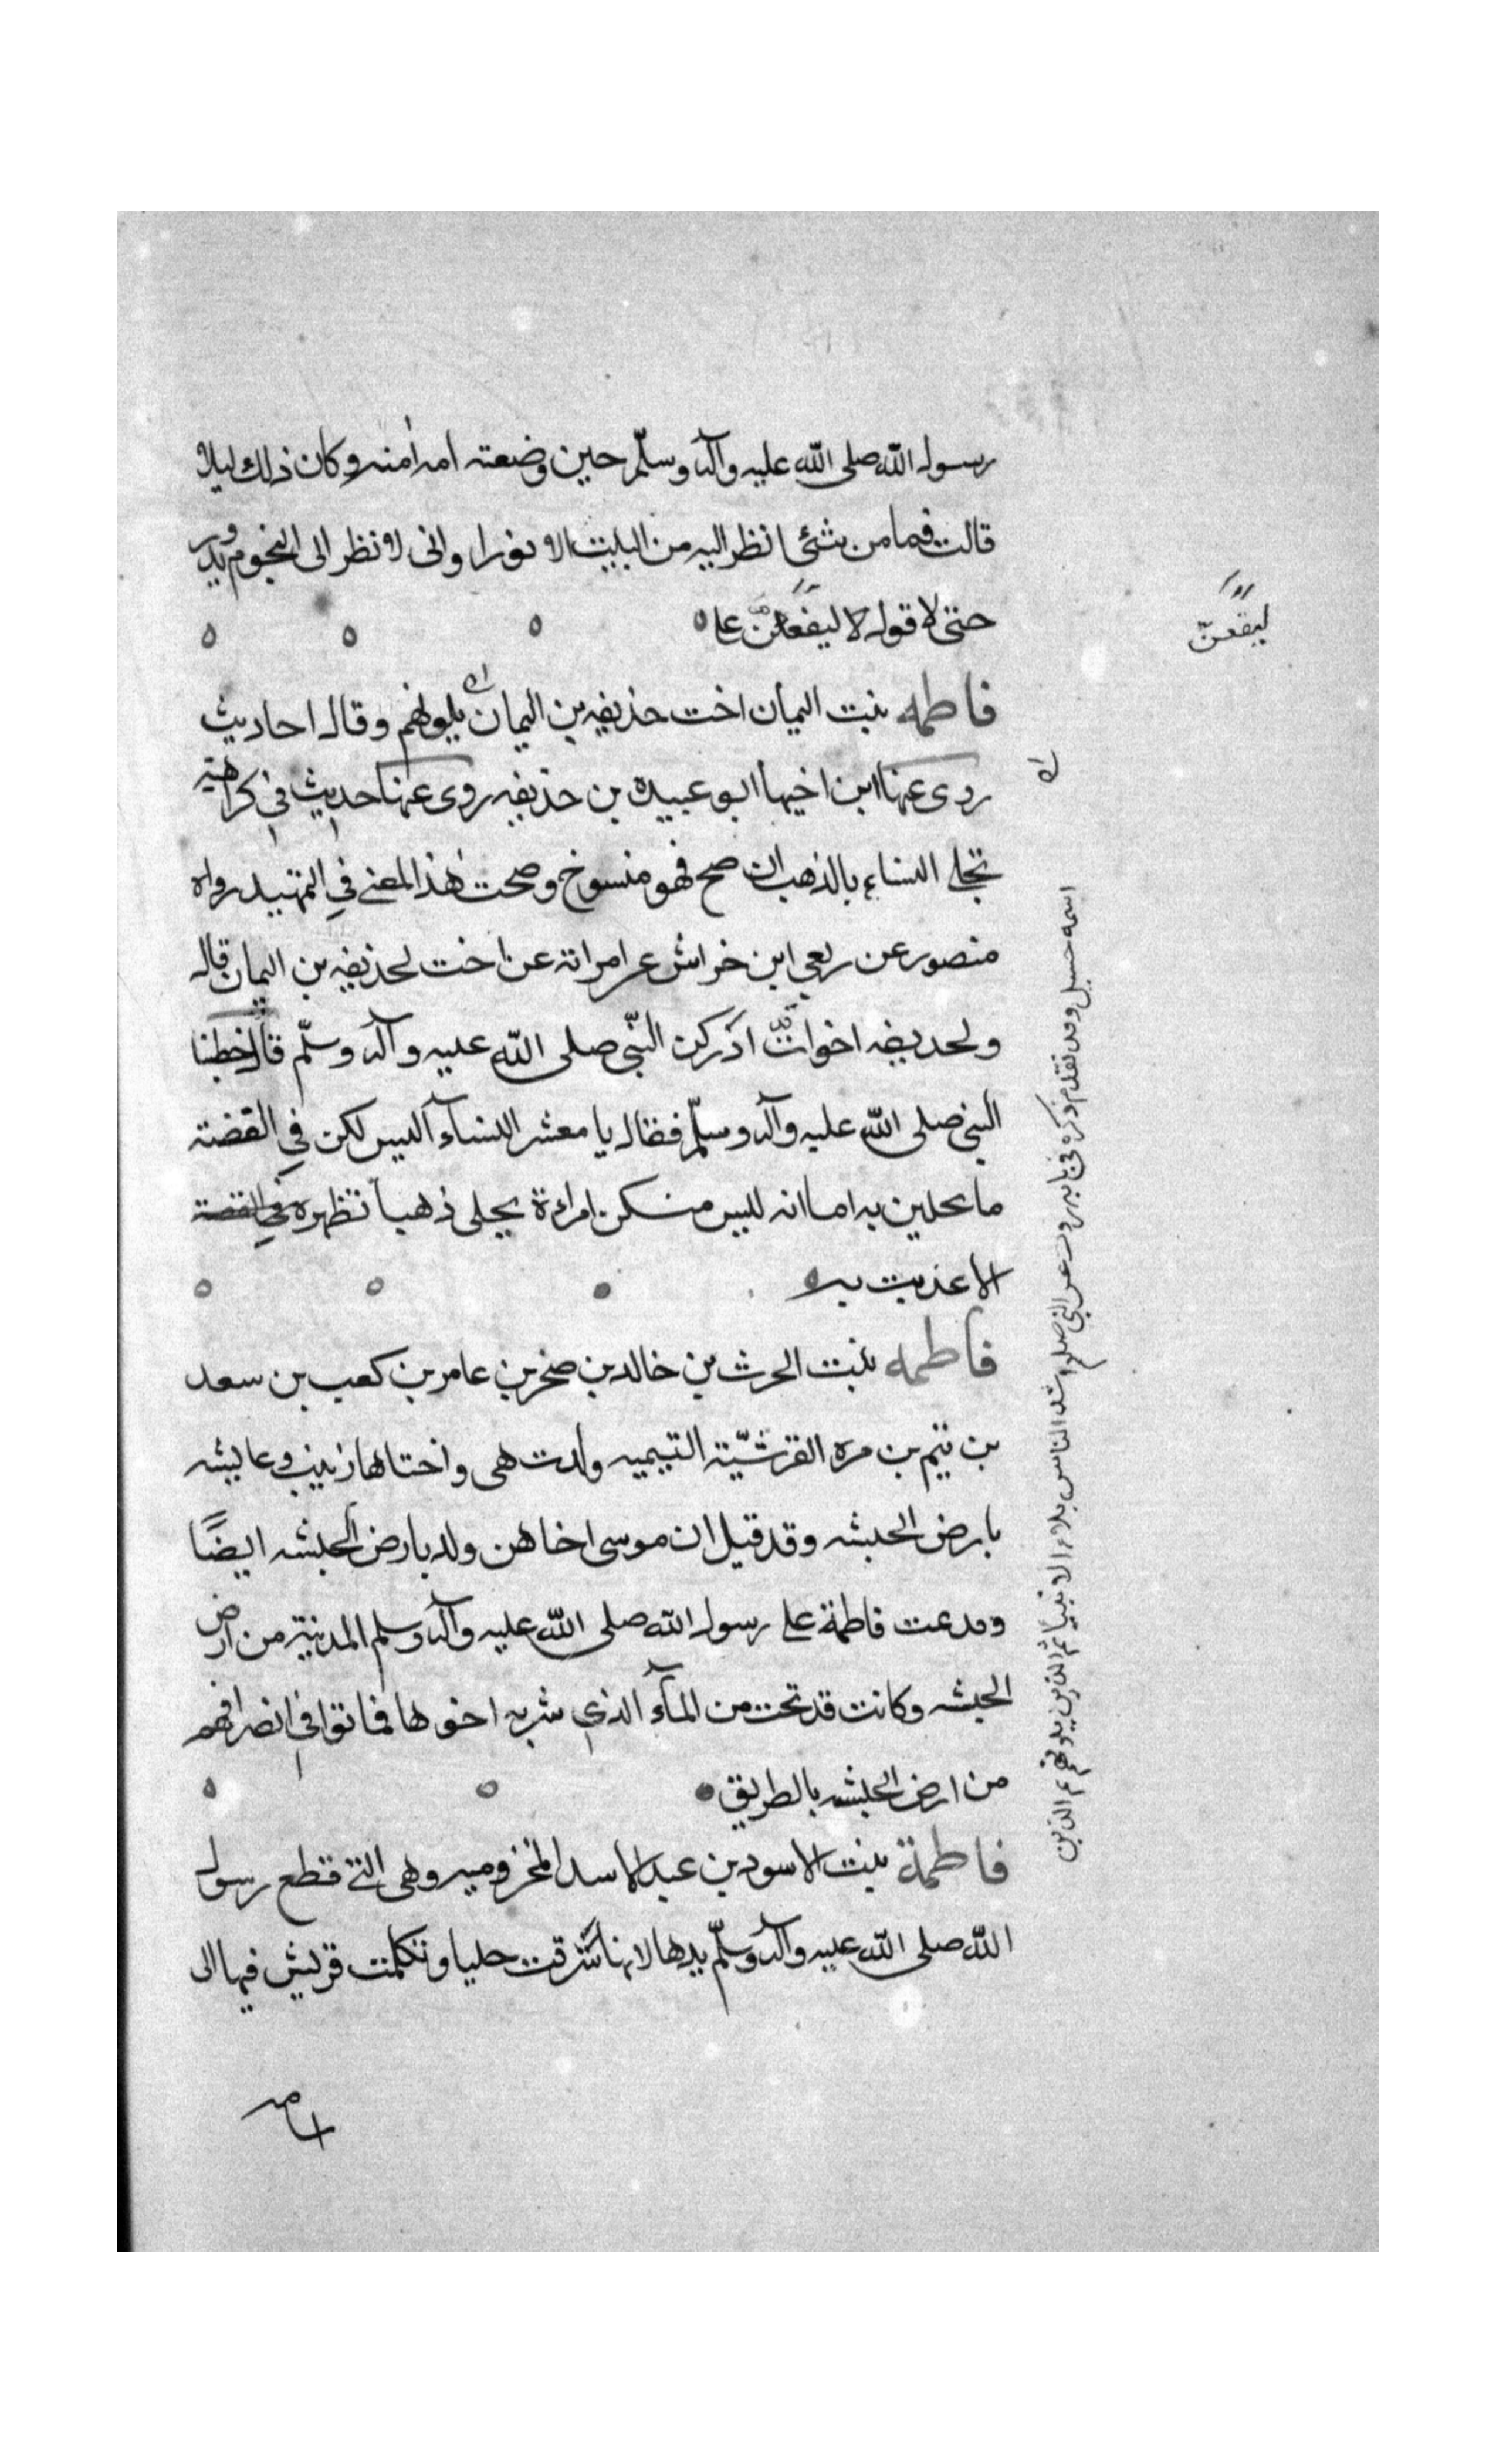 رسول الله صلى الله عليه وآله وسلّم حين وضعته امه امنه وكان ذلك ليلا
قالت فما من شئ انظر اليه من البيت الا نورا وانى لانظر الى النجوم تدنو
حتى لاقول لا ليقعن على
ليقعنّ
فاطمه بنت اليمان اخت حذيفه بن اليمان يلونهم وقال احاديث
روى عنها ابن اخيها ابو عبيده بن حذيفه روى عنها حديث في كراهية
تحلي النساء بالذهب ان صح فهو منسوخ وصحت هذا المعنى في التمهيد رواه
منصور عن ربعي ابن خراش عن امراته عن اخت لحذيفه بن اليمان قال
ولحذيفه اخوات ادركن النّبي صلى الله عليه وآله وسلّم قال خطبنا
النبي صلى الله عليه وآله وسلّم فقال يا معشر النساء اليس لكن في الفضة
ما تحلين به اما انه ليس منكن امراءة تحلى ذهبا تظهره في الفضة
الا عذبت به
فاطمه بنت الحرث بن خالد بن صخر بن عامر بن كعب بن سعد
بن تيم بن مره القرشيّة التيميه ولدت هى واختاها زينب وعايشه
بارض الحبشه وقد قيل ان موسى اخاهن ولد بارض الحبشه ايضًا
وقدمت فاطمة على رسول الله صلى الله عليه وآله وسلم المدينة من ارض
الحبشه وكانت قد نجت من المآء الذي شربه اخوتها فماتوا في انصرافهم
من ارض الحبشه بالطريق
فاطمة بنت الاسود بن عبد الاسد المخزوميه وهى التي قطع رسول
الله صلى الله عليه وآله وسلّم يدها لانها سرقت حليا وتكلمت قريش فيها الى
اسامه
اسمه حسيل وقد تقدم ذكره في بابه روت عن النبي صلعم اشد الناس بلاء الانبياء ثم الذين يلونهم ثم الذين